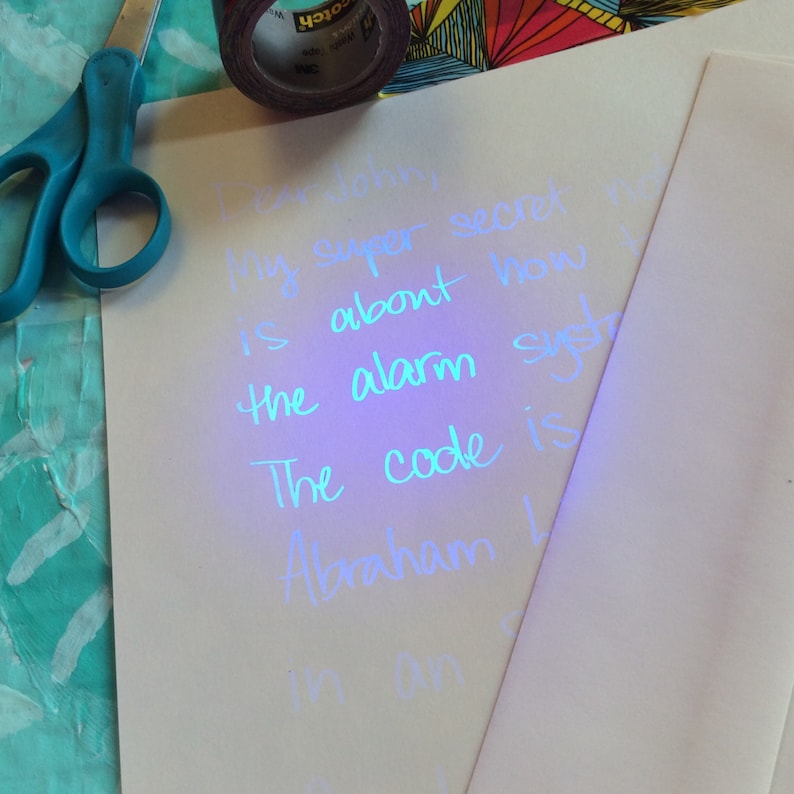 Scotch
Washi Tape
3M
Dear John,
My super secret not
is about how t
the alarm syst
The code is
Abraham L
in an